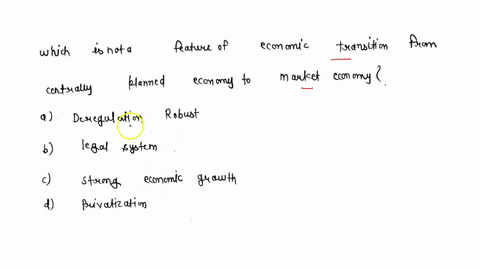 which is not a feature of economic transition from
centrally planned economy to market economy?
a) Deregulation Robust
b) legal system
c) strong economic growth
d) Privatization